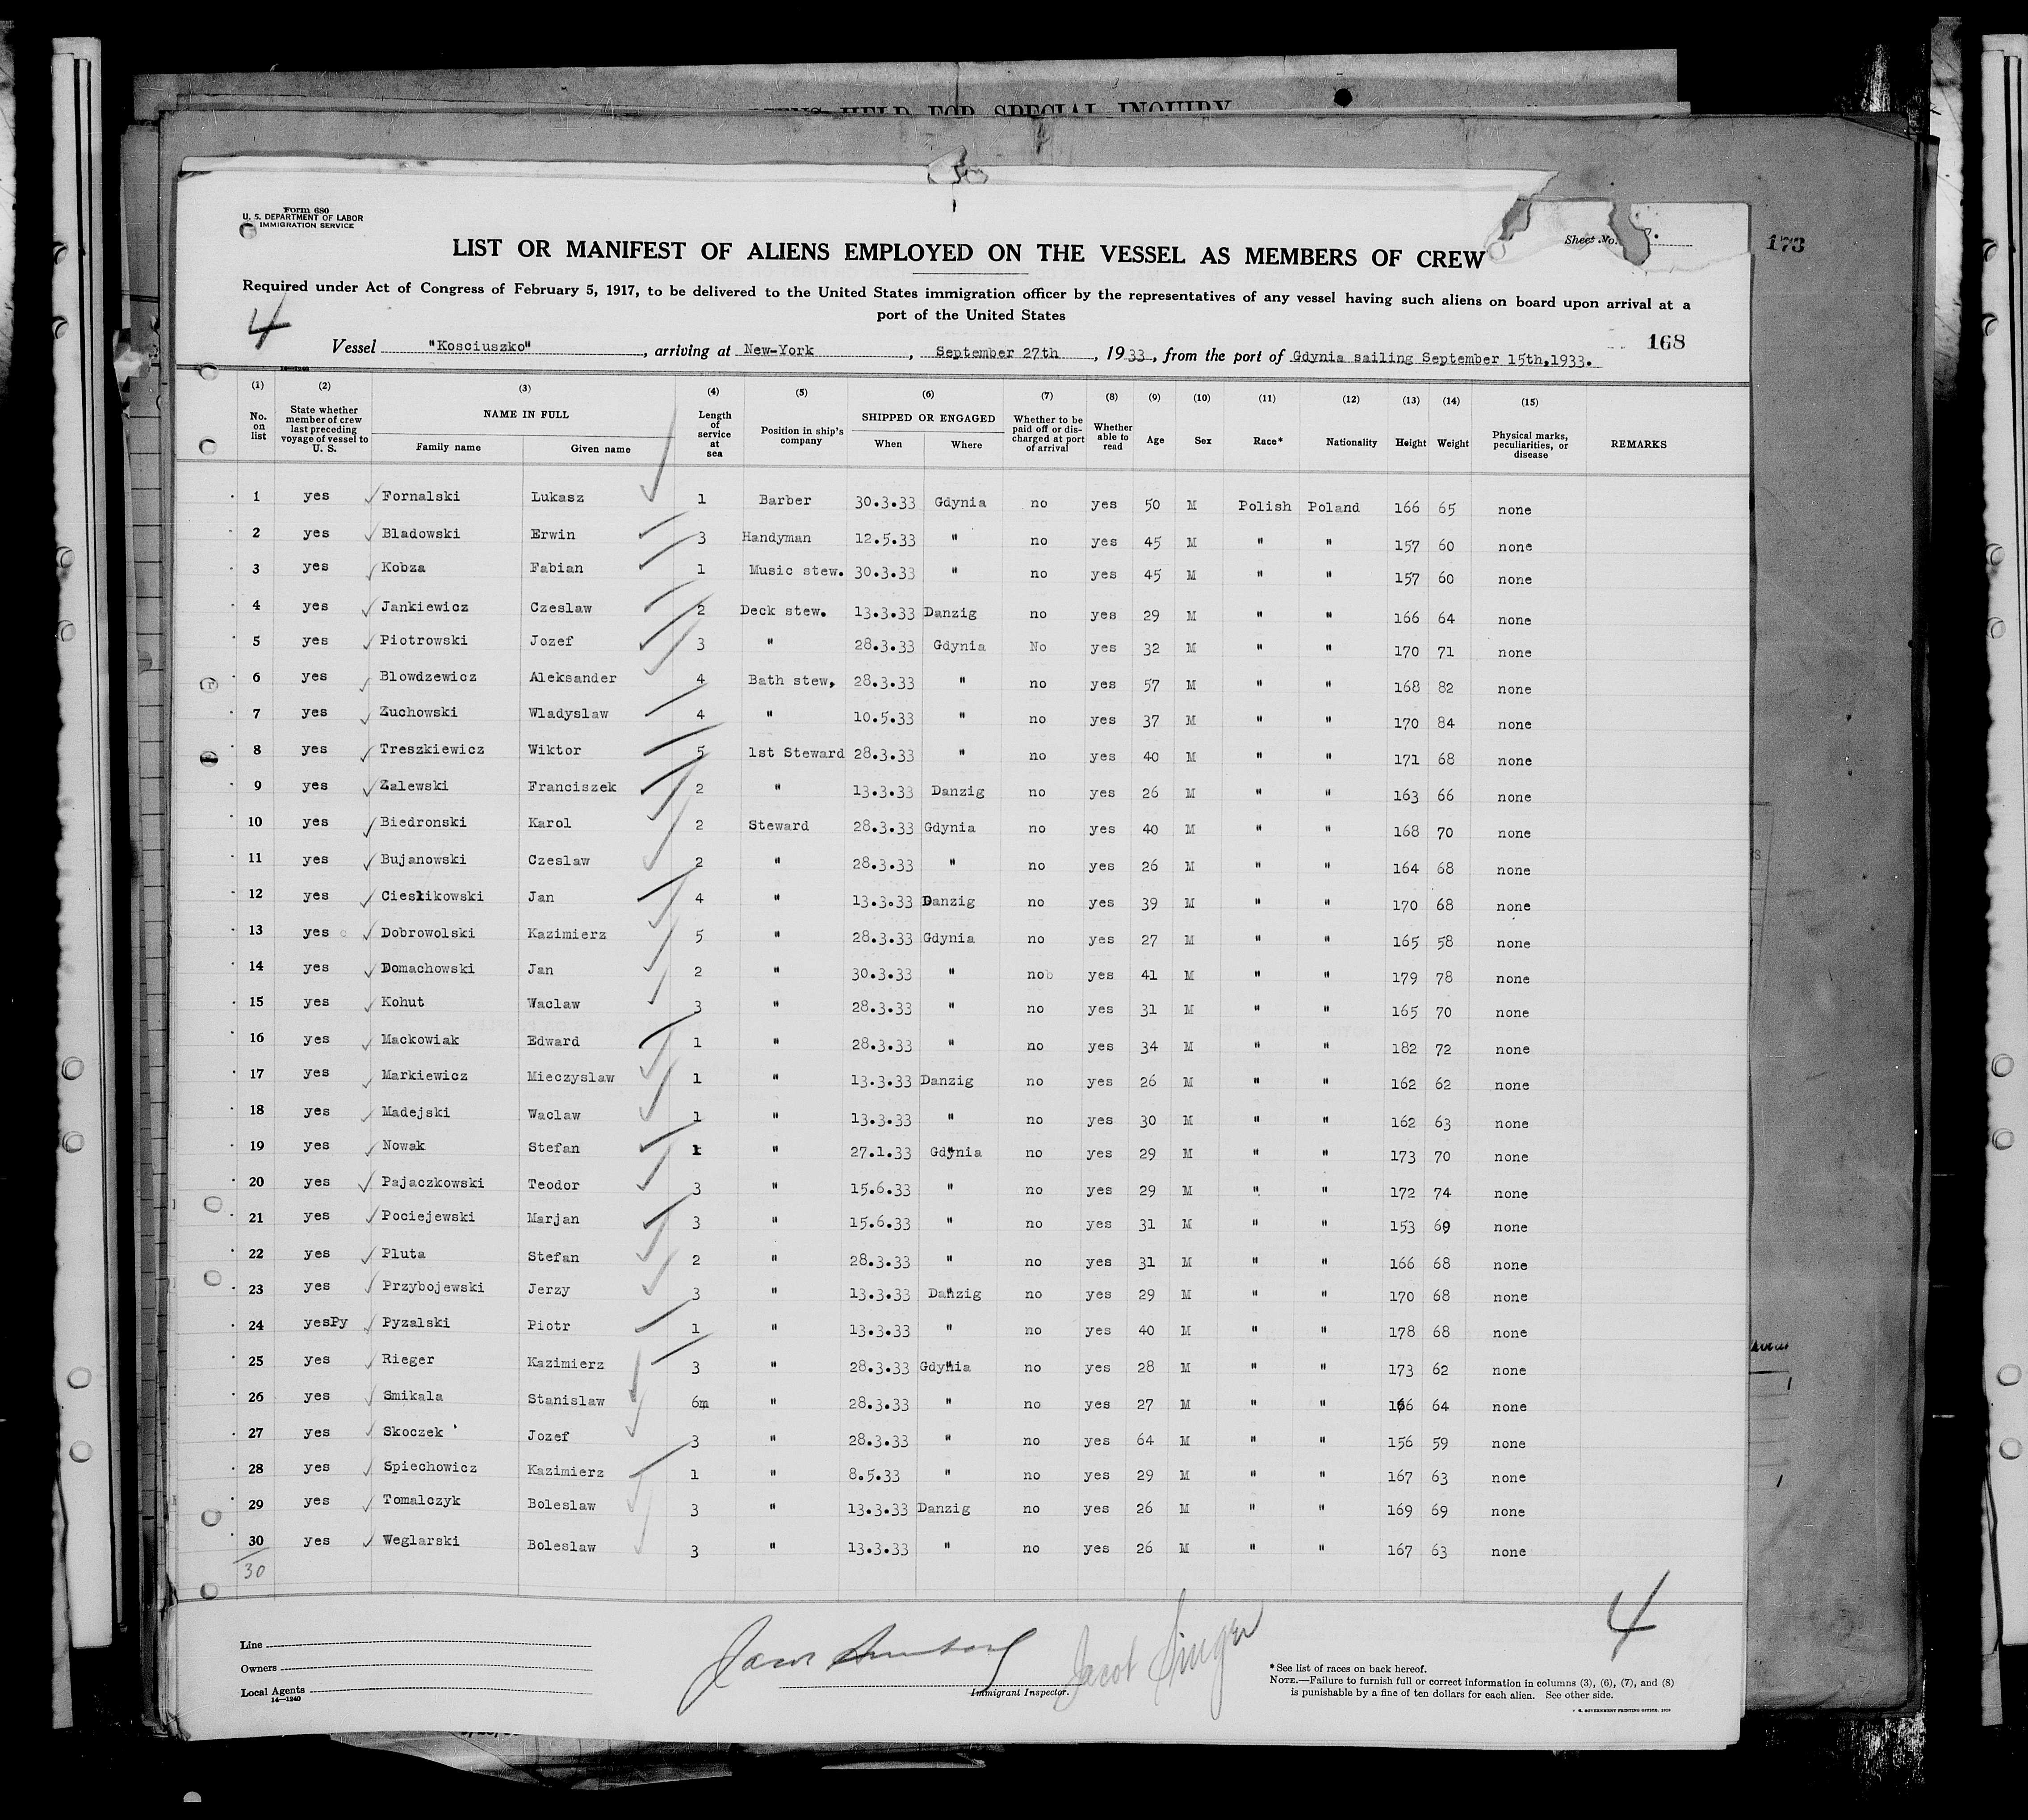 ALIENS HELD FOR SPECIAL INQUIRY
Form 680
U. S. DEPARTMENT OF LABOR
IMMIGRATION SERVICE
Sheet No.
173
LIST OR MANIFEST OF ALIENS EMPLOYED ON THE VESSEL AS MEMBERS OF CREW
Required under Act of Congress of February 5, 1917, to be delivered to the United States immigration officer by the representatives of any vessel having such aliens on board upon arrival at a
port of the United States
4
168
Vessel "Kosciuszko", arriving at New-York, September 27th, 1933, from the port of Gdynia sailing September 15th,1933.
14-1240
(1) (2) (3) (4) (5) (6) (7) (8) (9) (10) (11) (12) (13) (14) (15)
No. on list State whether member of crew last preceding voyage of vessel to U. S. NAME IN FULL Family name Given name Length of service at sea Position in ship's company SHIPPED OR ENGAGED When Where Whether to be paid off or discharged at port of arrival Whether able to read Age Sex Race* Nationality Height Weight Physical marks, peculiarities, or disease REMARKS
1 yes Fornalski Lukasz 1 Barber 30.3.33 Gdynia no yes 50 M Polish Poland 166 65 none
2 yes Bladowski Erwin 3 Handyman 12.5.33 " no yes 45 M " " 157 60 none
3 yes Kobza Fabian 1 Music stew. 30.3.33 " no yes 45 M " " 157 60 none
4 yes Jankiewicz Czeslaw 2 Deck stew. 13.3.33 Danzig no yes 29 M " " 166 64 none
5 yes Piotrowski Jozef 3 " 28.3.33 Gdynia No yes 32 M " " 170 71 none
6 yes Blowdzewicz Aleksander 4 Bath stew, 28.3.33 " no yes 57 M " " 168 82 none
7 yes Zuchowski Wladyslaw 4 " 10.5.33 " no yes 37 M " " 170 84 none
8 yes Treszkiewicz Wiktor 5 1st Steward 28.3.33 " no yes 40 M " " 171 68 none
9 yes Zalewski Franciszek 2 " 13.3.33 Danzig no yes 26 M " " 163 66 none
10 yes Biedronski Karol 2 Steward 28.3.33 Gdynia no yes 40 M " " 168 70 none
11 yes Bujanowski Czeslaw 2 " 28.3.33 " no yes 26 M " " 164 68 none
12 yes Cieslikowski Jan 4 " 13.3.33 Danzig no yes 39 M " " 170 68 none
13 yes Dobrowolski Kazimierz 5 " 28.3.33 Gdynia no yes 27 M " " 165 58 none
14 yes Domachowski Jan 2 " 30.3.33 " no yes 41 M " " 179 78 none
15 yes Kohut Waclaw 3 " 28.3.33 " no yes 31 M " " 165 70 none
16 yes Mackowiak Edward 1 " 28.3.33 " no yes 34 M " " 182 72 none
17 yes Markiewicz Mieczyslaw 1 " 13.3.33 Danzig no yes 26 M " " 162 62 none
18 yes Madejski Waclaw 1 " 13.3.33 " no yes 30 M " " 162 63 none
19 yes Nowak Stefan 1 " 27.1.33 Gdynia no yes 29 M " " 173 70 none
20 yes Pajaczkowski Teodor 3 " 15.6.33 " no yes 29 M " " 172 74 none
21 yes Pociejewski Marjan 3 " 15.6.33 " no yes 31 M " " 153 69 none
22 yes Pluta Stefan 2 " 28.3.33 " no yes 31 M " " 166 68 none
23 yes Przybojewski Jerzy 3 " 13.3.33 Danzig no yes 29 M " " 170 68 none
24 yesPy Pyzalski Piotr 1 " 13.3.33 " no yes 40 M " " 178 68 none
25 yes Rieger Kazimierz 3 " 28.3.33 Gdynia no yes 28 M " " 173 62 none
26 yes Smikala Stanislaw 6m " 28.3.33 " no yes 27 M " " 166 64 none
27 yes Skoczek Jozef 3 " 28.3.33 " no yes 64 M " " 156 59 none
28 yes Spiechowicz Kazimierz 1 " 8.5.33 " no yes 29 M " " 167 63 none
29 yes Tomalczyk Boleslaw 3 " 13.3.33 Danzig no yes 26 M " " 169 69 none
30 yes Weglarski Boleslaw 3 " 13.3.33 " no yes 26 M " " 167 63 none
30
4
Line
Owners
Local Agents
14-1240
Jacob Singer
Immigrant Inspector.
*See list of races on back hereof.
NOTE.—Failure to furnish full or correct information in columns (3), (6), (7), and (8)
is punishable by a fine of ten dollars for each alien. See other side.